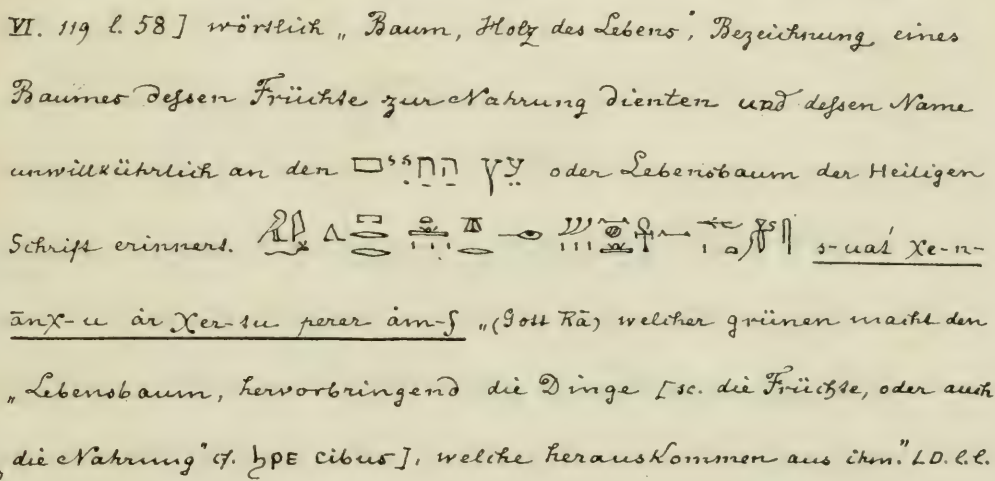 VI. 119 l. 58] wörtlich „Baum, Holz des Lebens", Bezeichnung eines
Baumes dessen Früchte zur Nahrung dienten und dessen Name
unwillkührlich an den עץ החיים oder Lebensbaum der Heiligen
Schrift erinnert. s-uaź χe-n-
ānχ-u àr χer-tu perer àm-f „(Gott Rā) welcher grünen macht den
„Lebensbaum, hervorbringend die Dinge [sc. die Früchte, oder auch
die Nahrung" cf. ϧⲣⲉ cibus], welche herauskommen aus ihm." LD. l. l.